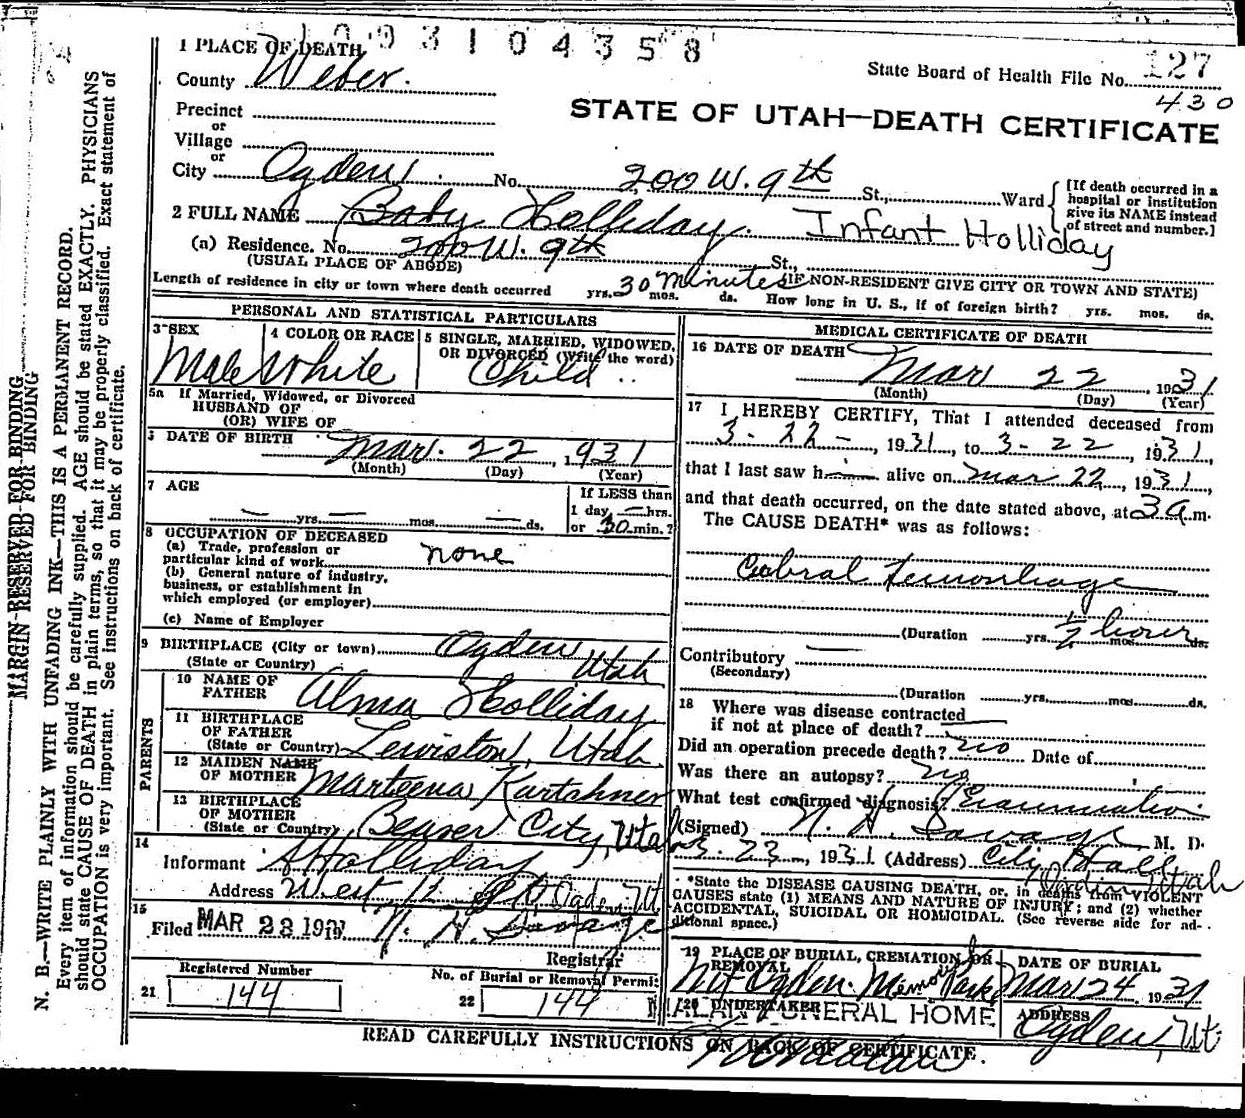 1 PLACE OF DEATH 193104358
County Weber.
State Board of Health File No. 127
430
Precinct
or
Village
or
STATE OF UTAH—DEATH CERTIFICATE
City Ogden No. 200 W. 9th St., Ward
[If death occurred in a hospital or institution give its NAME instead of street and number.]
2 FULL NAME Baby Holliday. Infant Holliday
(a) Residence. No. 200 W. 9th St.,
(USUAL PLACE OF ABODE) (IF NON-RESIDENT GIVE CITY OR TOWN AND STATE)
Length of residence in city or town where death occurred yrs. 30 Minutes mos. ds. How long in U. S., if of foreign birth? yrs. mos. ds.
PERSONAL AND STATISTICAL PARTICULARS
3 SEX
Male
4 COLOR OR RACE
White
5 SINGLE, MARRIED, WIDOWED, OR DIVORCED (Write the word)
Child
5a If Married, Widowed, or Divorced
HUSBAND OF
(OR) WIFE OF
DATE OF BIRTH Mar. 22, 1931
(Month) (Day) (Year)
7 AGE
— yrs. — mos. — ds.
If LESS than
1 day — hrs.
or 30 min.?
8 OCCUPATION OF DECEASED
(a) Trade, profession or
particular kind of work none
(b) General nature of industry,
business, or establishment in
which employed (or employer)
(c) Name of Employer
9 BIRTHPLACE (City or town) Ogden
(State or Country) Utah
PARENTS
10 NAME OF FATHER Alma Holliday
11 BIRTHPLACE OF FATHER
(State or Country) Lewiston, Utah
12 MAIDEN NAME OF MOTHER Marteena Kartchner
13 BIRTHPLACE OF MOTHER
(State or Country) Beaver City, Utah
14
Informant A Holliday
Address West 12 St Ogden Ut.
15
Filed MAR 23 1931 N. H. Savage
Registrar
Registered Number
21 144
No. of Burial or Removal Permit
22 144
MEDICAL CERTIFICATE OF DEATH
16 DATE OF DEATH
Mar 22, 1931
(Month) (Day) (Year)
17 I HEREBY CERTIFY, That I attended deceased from
3-22-, 1931, to 3-22, 1931,
that I last saw him alive on Mar 22, 1931,
and that death occurred, on the date stated above, at 3 a.m.
The CAUSE DEATH* was as follows:
Cebral Hemorrhage
(Duration yrs. 1/2 hours mos. ds.
Contributory —
(Secondary)
(Duration yrs. mos. ds.
18 Where was disease contracted
if not at place of death?
Did an operation precede death? no Date of
Was there an autopsy? no
What test confirmed diagnosis? Examination
(Signed) N. H. Savage M. D.
3-23, 1931 (Address) City Hall
Ogden, Utah
*State the DISEASE CAUSING DEATH, or, in deaths from VIOLENT
CAUSES state (1) MEANS AND NATURE OF INJURY; and (2) whether
ACCIDENTAL, SUICIDAL OR HOMICIDAL. (See reverse side for ad-
ditional space.)
19 PLACE OF BURIAL, CREMATION, OR REMOVAL
Mt Ogden Memo Park
DATE OF BURIAL
Mar 24 1931
20 UNDERTAKER
FUNERAL HOME
ADDRESS
Ogden, Ut
READ CAREFULLY INSTRUCTIONS ON BACK OF CERTIFICATE.
MARGIN RESERVED FOR BINDING
MARGIN RESERVED FOR BINDING
N. B.—WRITE PLAINLY WITH UNFADING INK—THIS IS A PERMANENT RECORD.
Every item of information should be carefully supplied. AGE should be stated EXACTLY. PHYSICIANS
should state CAUSE OF DEATH in plain terms, so that it may be properly classified. Exact statement of
OCCUPATION is very important. See instructions on back of certificate.